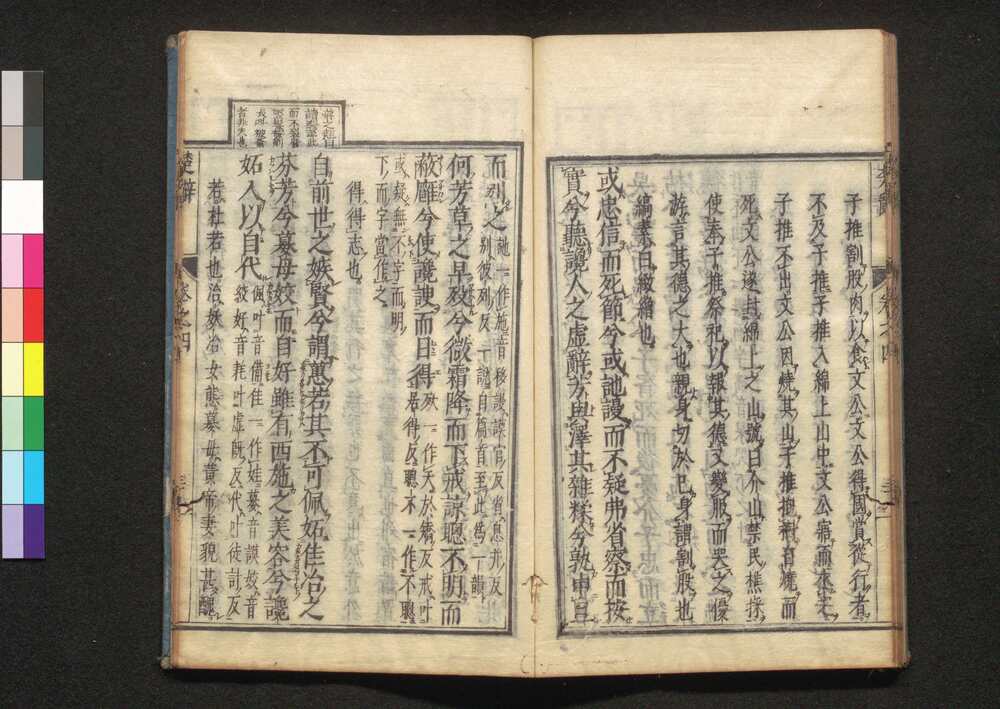 子推割股肉以食文公文公得國賞從行者
不及子推子推入綿上山中文公寤而求之
子推不出文公因燒其山子推抱樹自燒而
死文公遂封綿上之山號曰介山禁民樵採
使奉子推祭祀以報其德又變服而哭之優
游言其德之大也親身切於己身謂割股也
縞素白緻繒也
或忠信而死節兮或訑謾而不疑弗省察而按
實兮聽讒人之虛辭芳與澤其雜糅兮孰申旦
而別之訑一作訑音移謾謨官反省息井反
別彼列反一說自篇首至此為一韻
何芳草之早殀兮微霜降而下戒諒聰不明而
蔽廱兮使讒諛而日得殀一作夭於矯反戒叶
居得反聰不一作不聰
或疑無不字而明
下而字當作之
得得志也
自前世之嫉賢兮謂蕙若其不可佩妬佳冶之
芬芳兮嫫母姣而自好雖有西施之美容兮讒
妬入以自代佩叶音備佳一作娃嫫音謨姣音
絞好音耗叶虛既反代叶徒計反
若杜若也冶妖冶女態嫫母黃帝妻貌甚醜
楚辭
卷之四
三